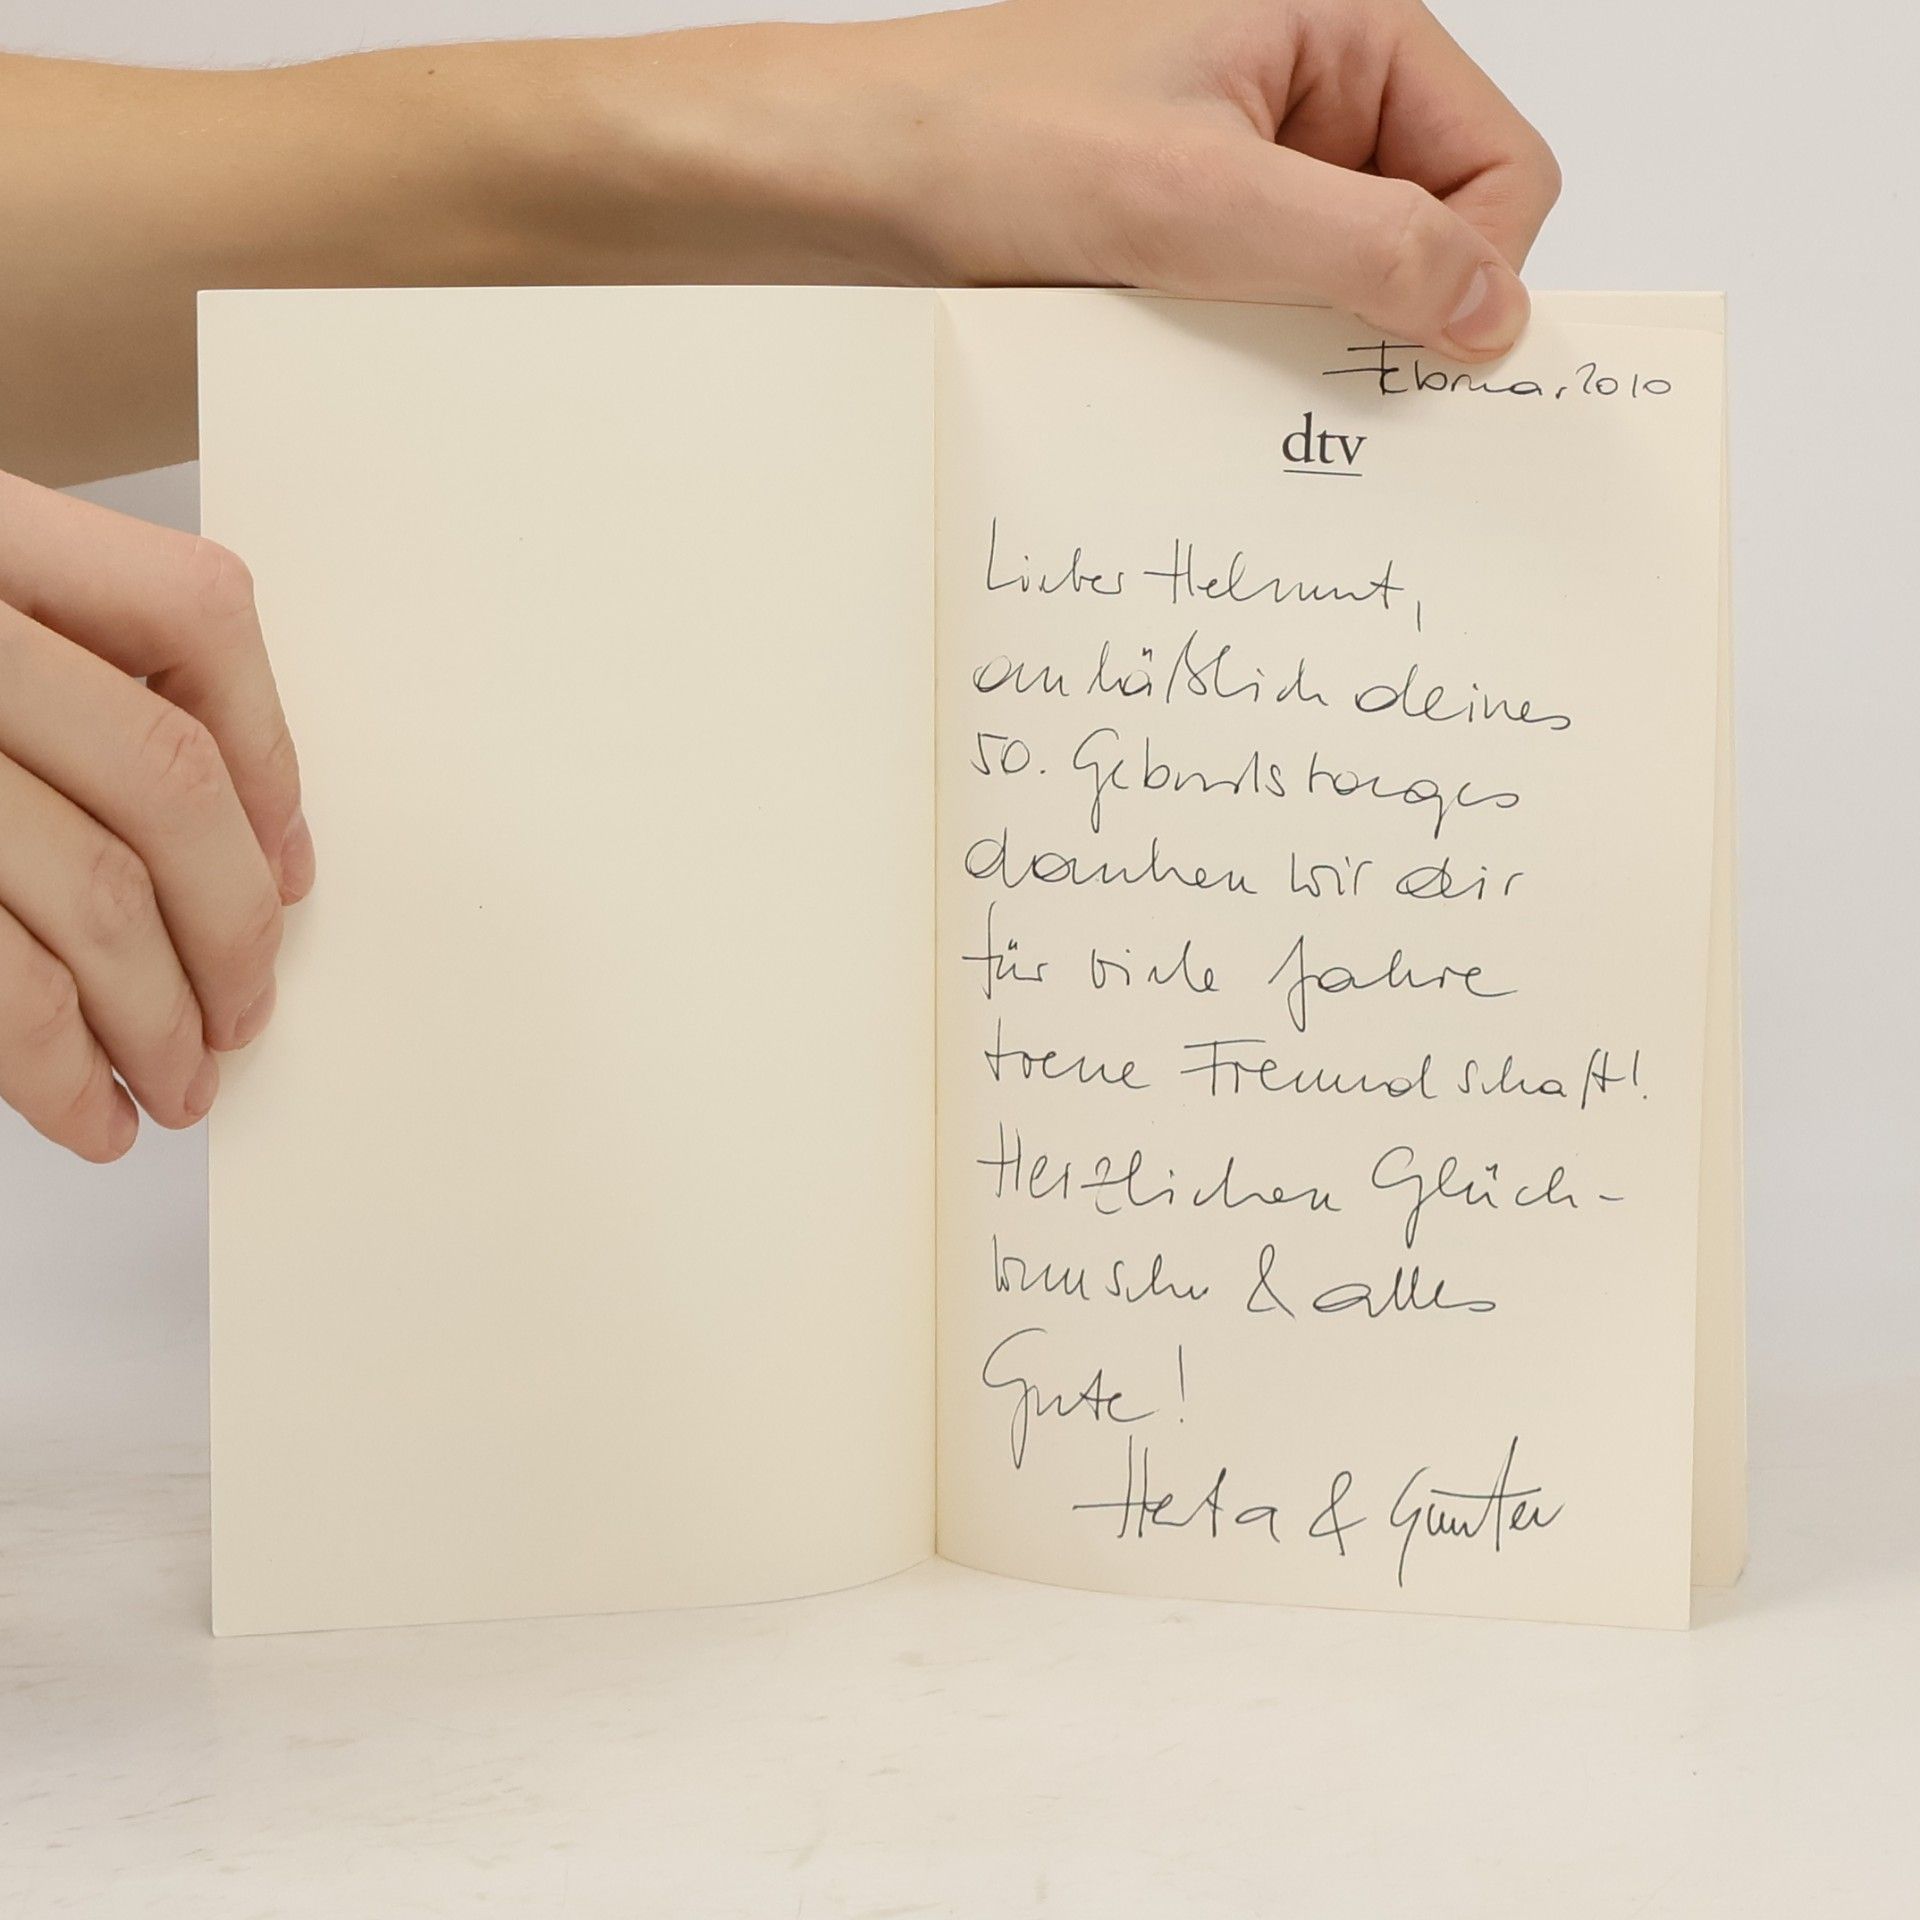 Februar 2010
dtv
Lieber Helmut,
anläßlich deines
50. Geburtstages
danken wir dir
für viele Jahre
treue Freundschaft!
Herzlichen Glück-
wunsch & alles
Gute!
Herta & Günter